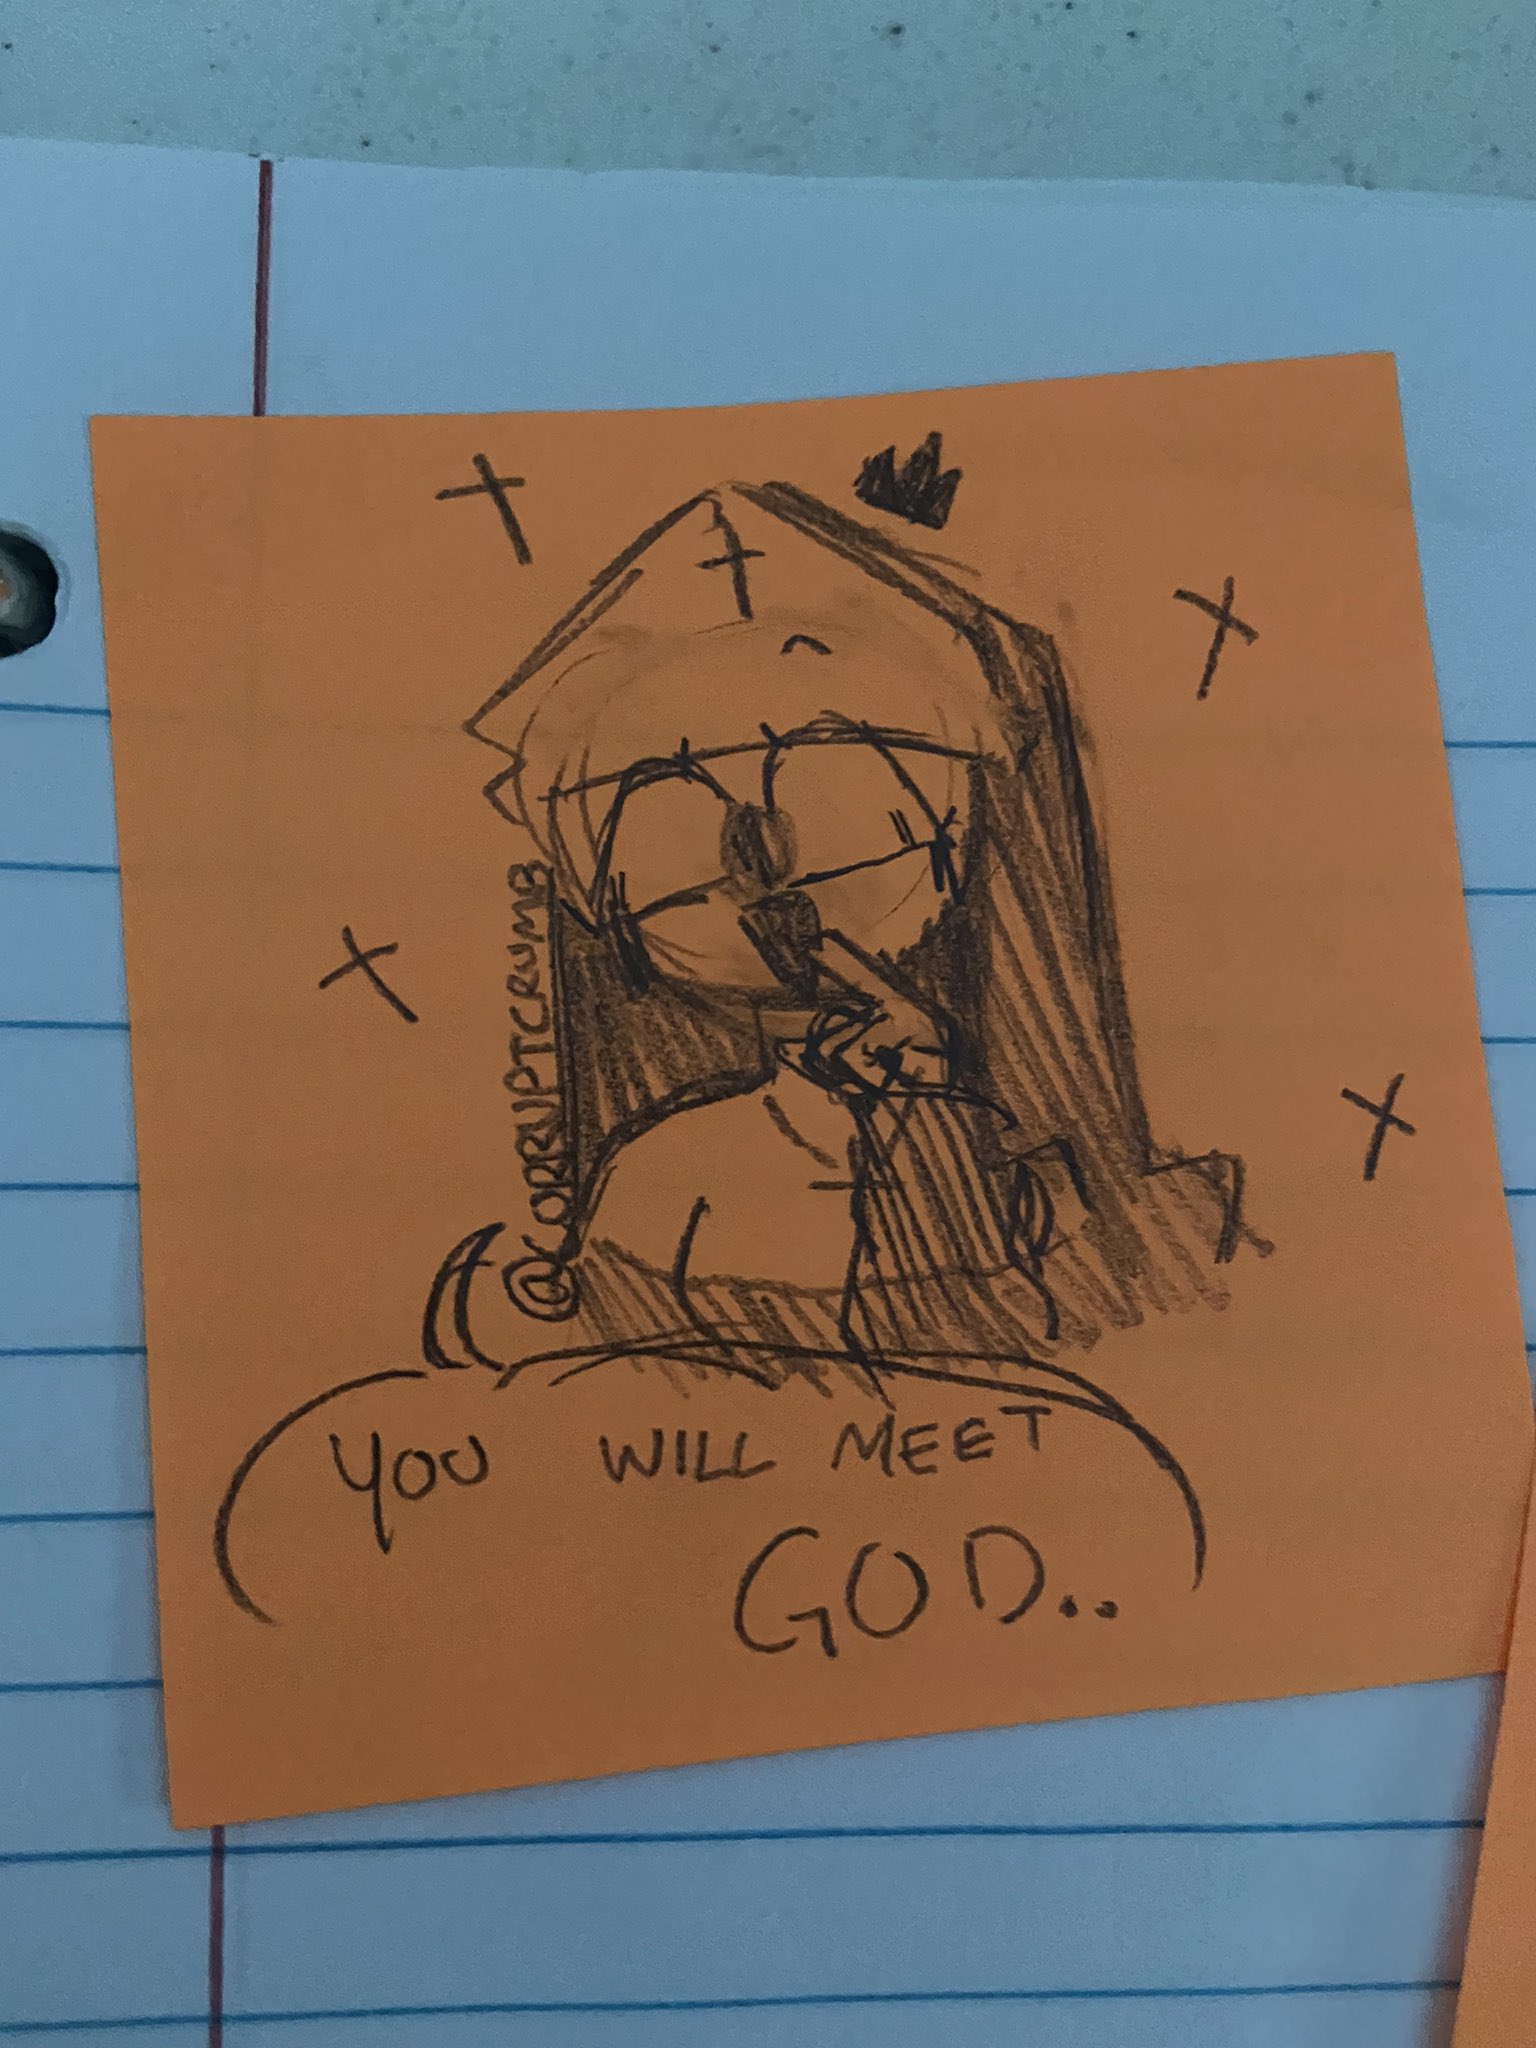 @CORRUPTCRUMB
YOU WILL MEET
GOD..